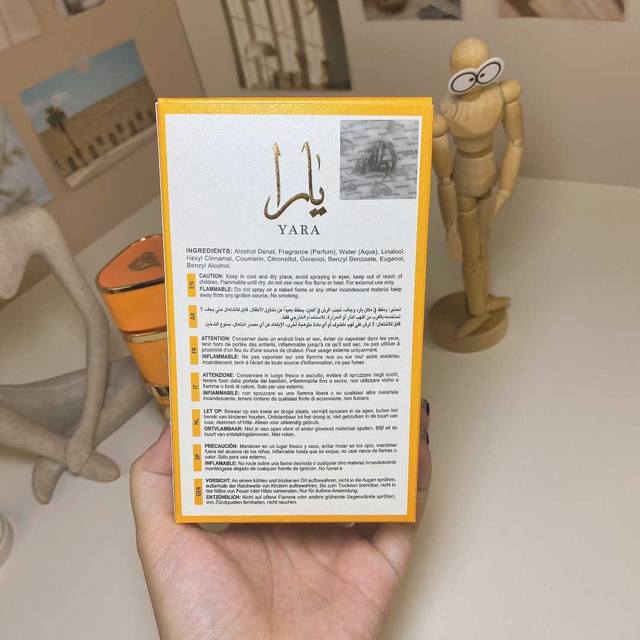 يارا
YARA
INGREDIENTS: Alcohol Denat, Fragrance (Parfum), Water (Aqua), Linalool,
Hexyl Cinnamal, Coumarin, Citronellol, Geraniol, Benzyl Benzoate, Eugenol,
Benzyl Alcohol.
EN
CAUTION: Keep in cool and dry place, avoid spraying in eyes, keep out of reach of
children, Flammable until dry, do not use near fire flame or heat. For external use only.
FLAMMABLE: Do not spray on a naked flame or any other incandescent material keep
away from any ignition source, No smoking.
AR
تحذير: يحفظ في مكان بارد وجاف، تجنب الرش في العين، يحفظ بعيداً عن متناول الأطفال، قابل للاشتعال حتى يجف، لا
تستخدمه بالقرب من اللهب النار أو الحرارة. للاستخدام الخارجي فقط.
قابل للاشتعال: لا ترش على لهب مكشوف أو أي مادة متوهجة أخرى، الإبتعاد عن أي مصدر اشتعال، ممنوع التدخين.
FR
ATTENTION: Conserver dans un endroit frais et sec, éviter de vaporiser dans les yeux,
tenir hors de portée des enfants, inflammable jusqu'à ce qu'il soit sec, ne pas utiliser à
proximité d'un feu ou d'une source de chaleur. Pour usage externe uniquement.
INFLAMMABLE: Ne pas vaporiser sur une flamme nue ou sur tout autre matériau
incandescent, tenir à l'écart de toute source d'inflammation, ne pas fumer.
IT
ATTENZIONE: Conservare in luogo fresco e asciutto, evitare di spruzzare negli occhi,
tenere fuori dalla portata dei bambini, infiammabile fino a secco, non utilizzare vicino a
fiamme o fonti di calore. Solo per uso esterno.
INFIAMMABILE: non spruzzare su una fiamma libera o su qualsiasi altro materiale
incandescente, tenere lontano da qualsiasi fonte di accensione, non fumare.
NL
LET OP: Bewaar op een koele en droge plaats, vermijd sproeien in de ogen, buiten het
bereik van kinderen houden. Ontvlambaar tot het droog is, niet gebruiken in de buurt van
vuur, vlammen of hitte. Alleen voor uitwendig gebruik.
ONTVLAMBAAR: Niet in een open vlam of ander gloeiend materiaal spuiten. Blijf uit de
buurt van ontstekingsbronnen. Niet roken.
SP
PRECAUCIÓN: Mantener en un lugar fresco y seco, evitar rociar en los ojos, mantener
fuera del alcance de los niños, inflamable hasta que se seque, no usar cerca de llamas o
calor. Sólo para uso externo.
INFLAMABLE: No rocíe sobre una llama desnuda o cualquier otro material incandescente
manténgase alejado de cualquier fuente de ignición. No fumar.
GER
VORSICHT: An einem kühlen und trockenen Ort aufbewahren, nicht in die Augen sprühen,
außerhalb der Reichweite von Kindern aufbewahren, Bis zum Trocknen brennbar, nicht in
der Nähe von Feuer oder Hitze verwenden. Nur für äußere Anwendung.
ENTZÜNDLICH: Nicht auf offene Flamme oder andere glühende Gegenstände sprühen,
von Zündquellen fernhalten, nicht rauchen.